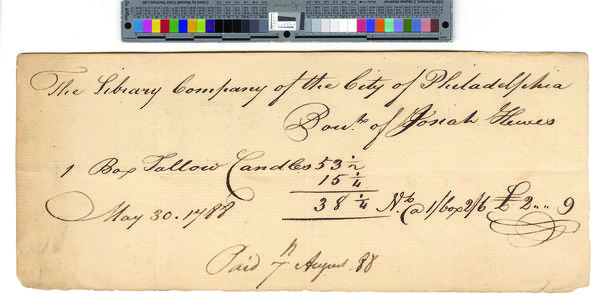 The Library Company of the City of Philadelphia
Bou.t of Josiah Hewes
1 Box Tallow Candles 53 ½
15 ¼
38 ¼ N.t @ 1/ box 2/6 £ 2 „ „ 9
May 30. 1788
Paid 7 August 88